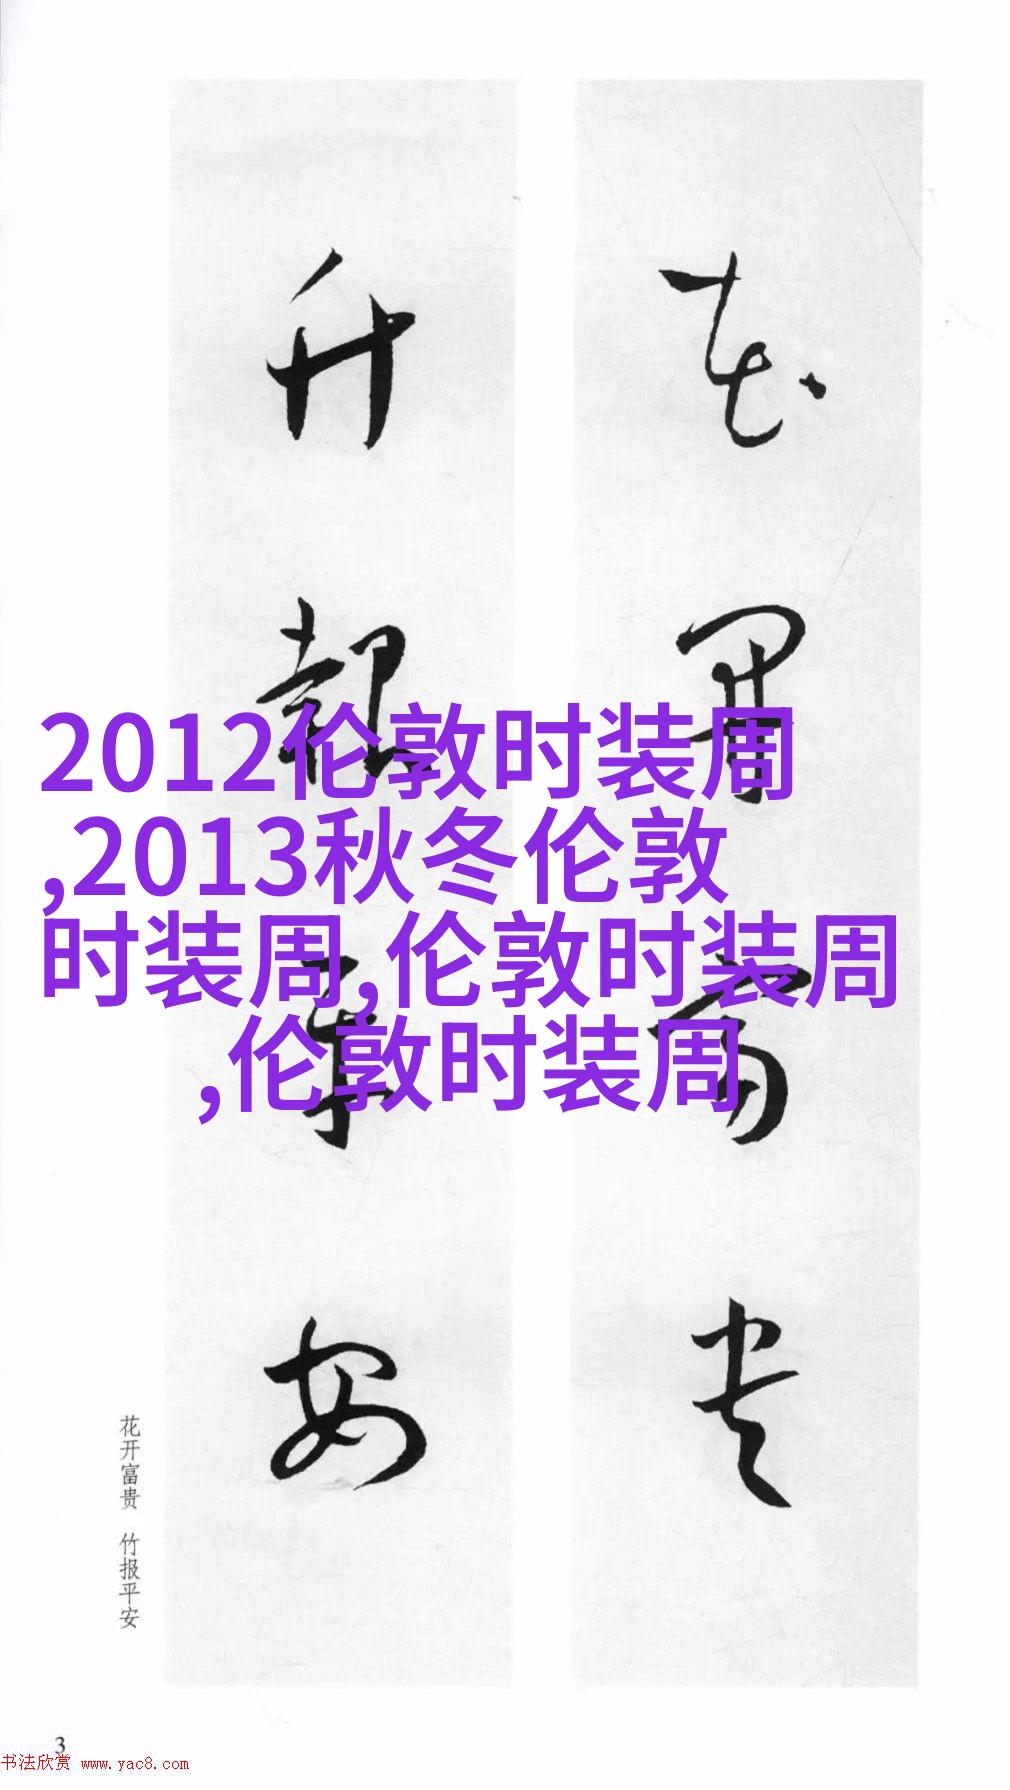 花开富贵
竹报平安
2012伦敦时装周
,2013秋冬伦敦
时装周,伦敦时装周
,伦敦时装周
花开富贵 竹报平安
3
书法欣赏 www.yac8.com